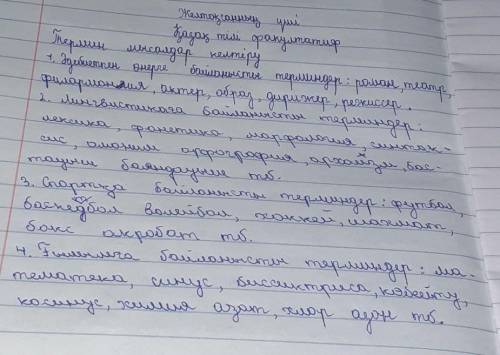 Желтоқсанның үші
Қазақ тілі факультатив
Термин мысалдар келтіру
1. Әдебиетпен өнерге байланысты терминдер: роман, театр,
филармония, актер, образ, дирижер, режиссер.
2. Лингвистикаға байланысты терминдер:
лексика, фонетика, морфология, синтак-
сис, омоним орфография, архаизм, бас-
тауыш баяндауыш тб.
3. Спортқа байланысты терминдер: футбол,
баскедбол волейбол, хоккей, шахмат,
бокс акробат тб.
4. Ғылымға байланысты терминдер: ма-
тематека, синус, биссиктриса, көбейту,
косинус, химия азат, хлор азон тб.